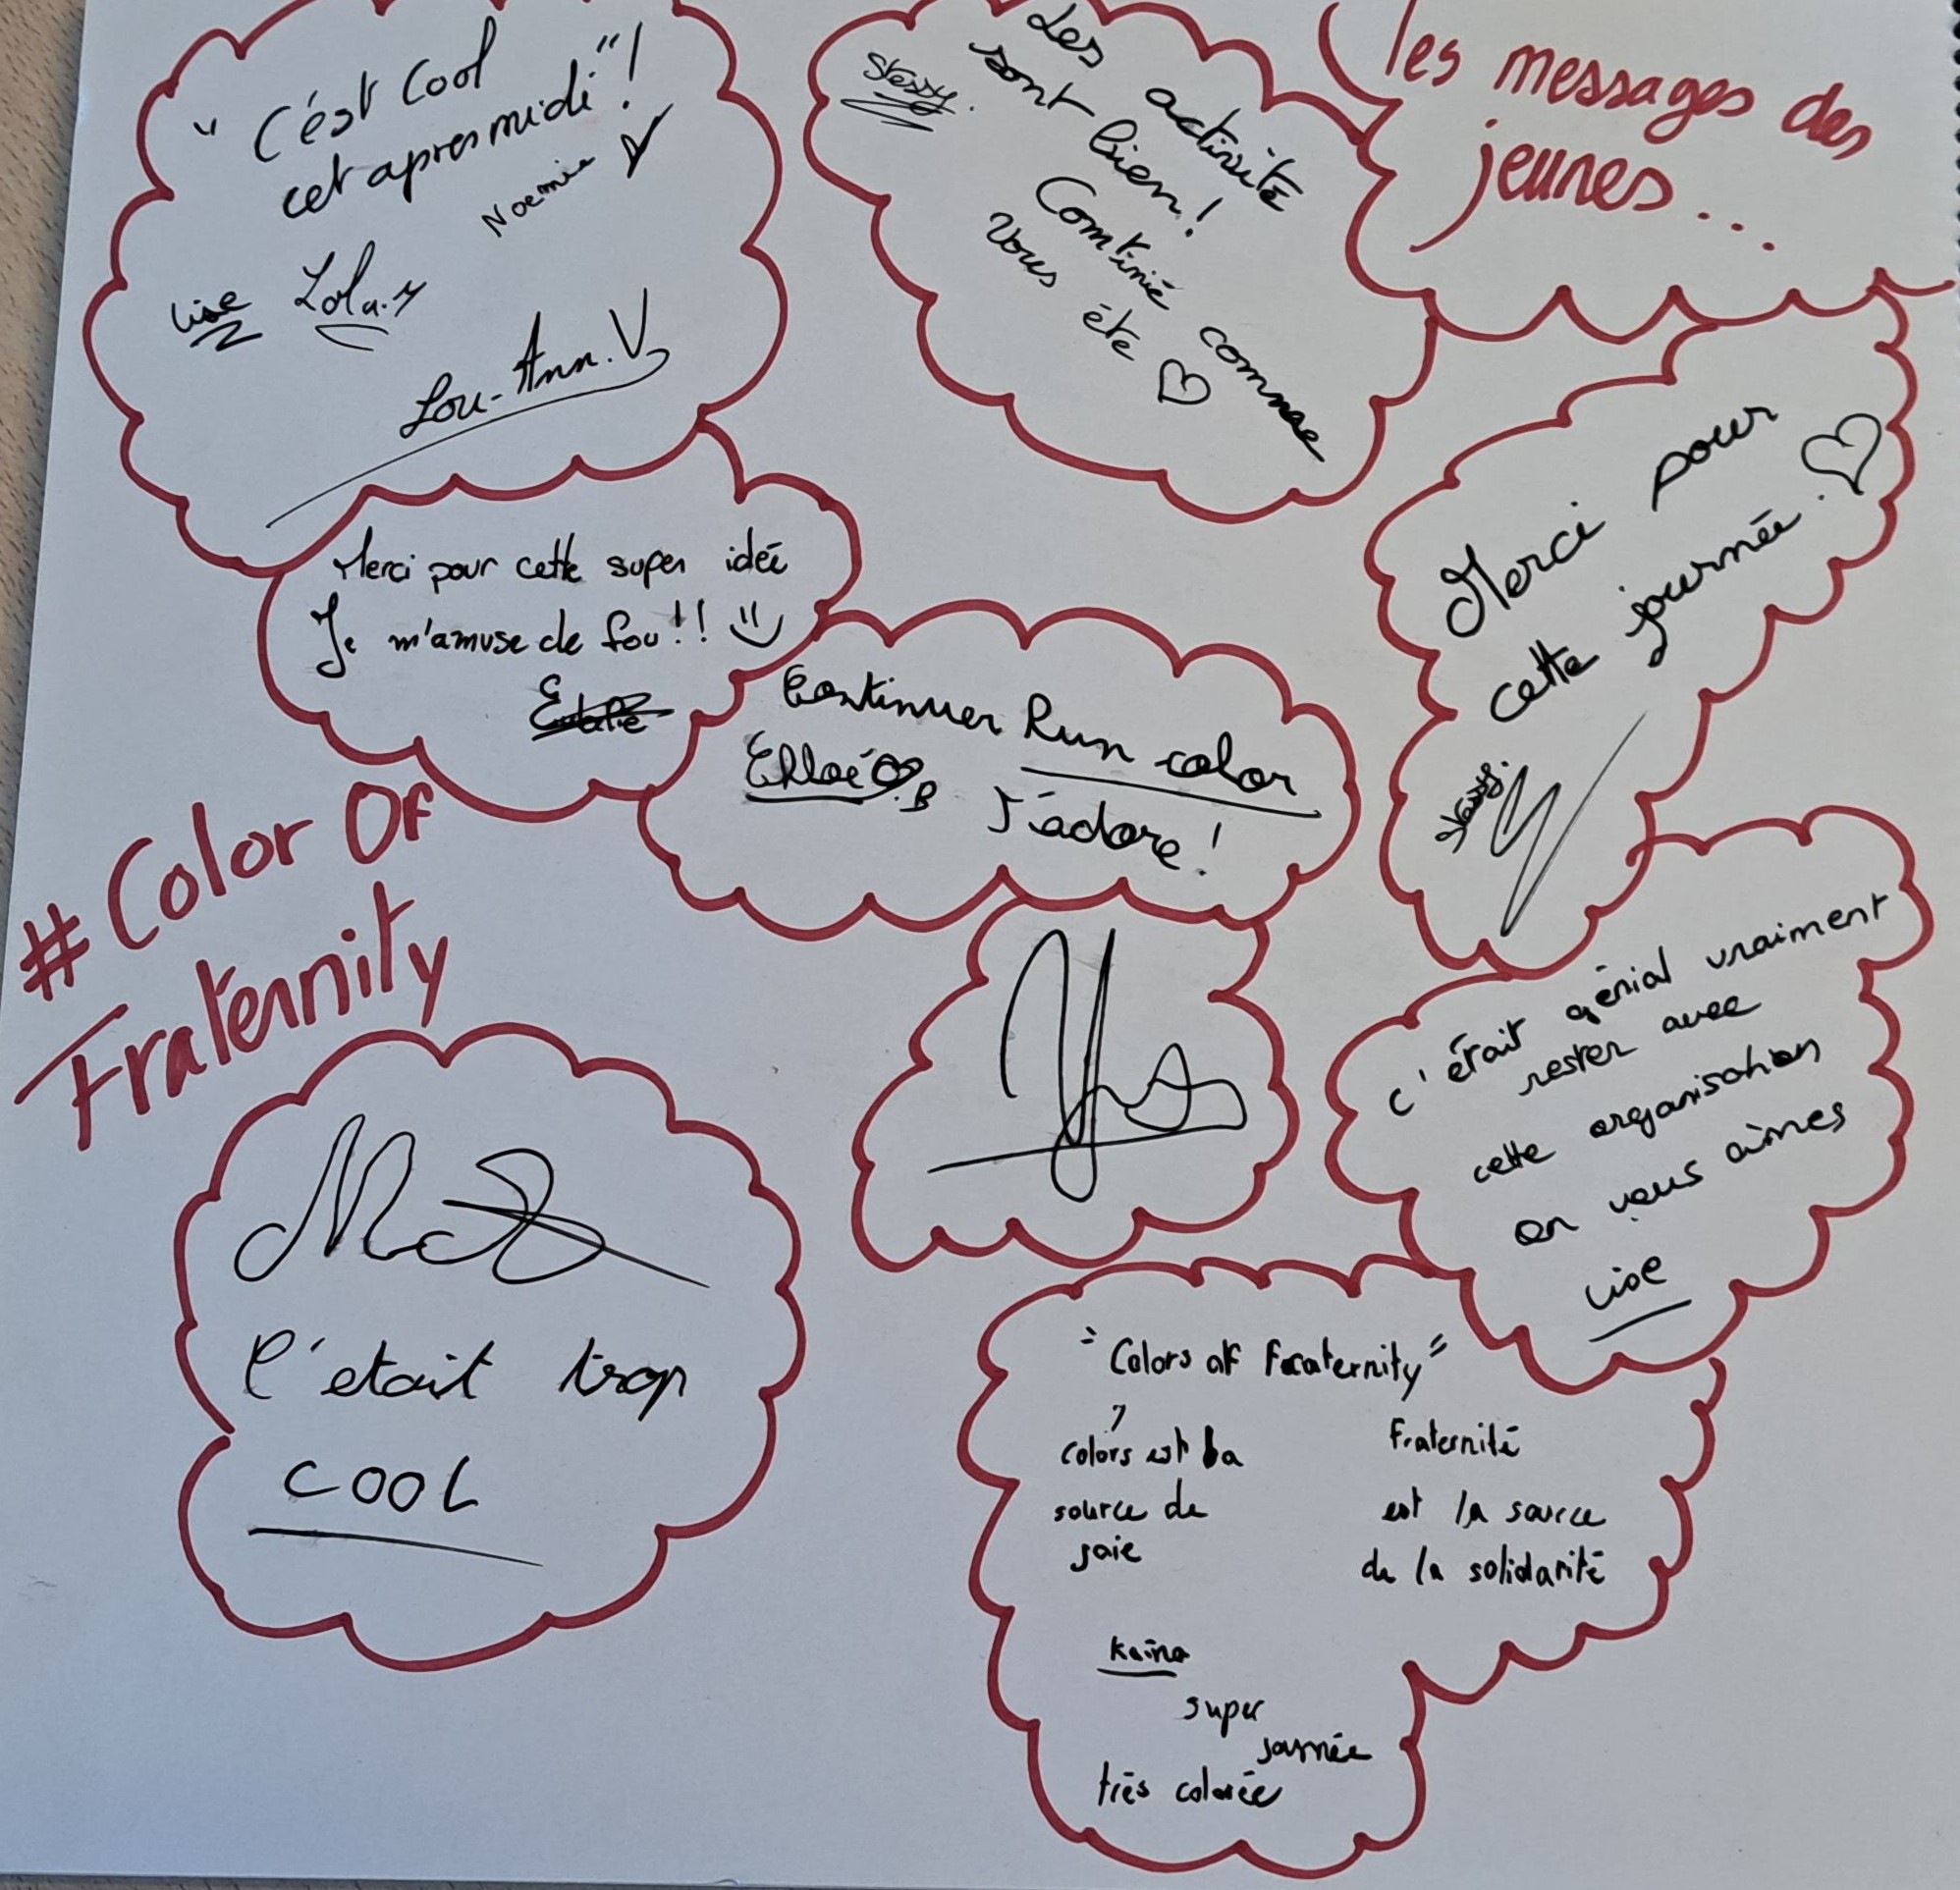 "C'ést Cool
cet apres midi"!
Noemie
Lise Lola.M
Lou-Ann.V
Stessy.
Les activité
sont bien!
Continié comme
Vous ête ♡
les messages des
jeunes...
Merci pour cette super ideé
Je m'amuse de fou!!
Eulalie
Merci pour
cette journée. ♡
Continuer Run color
Chloé B J'adore!
# Color Of
Fraternity
c'était génial vraiment
rester avec
cette organisation
on vous aimes
Lise
C'etait trop
COOL
"Colors of Fraternity"
Colors est la
source de
joie
Fraternité
est la source
de la solidarité
Kaina
super
journée
très colorée